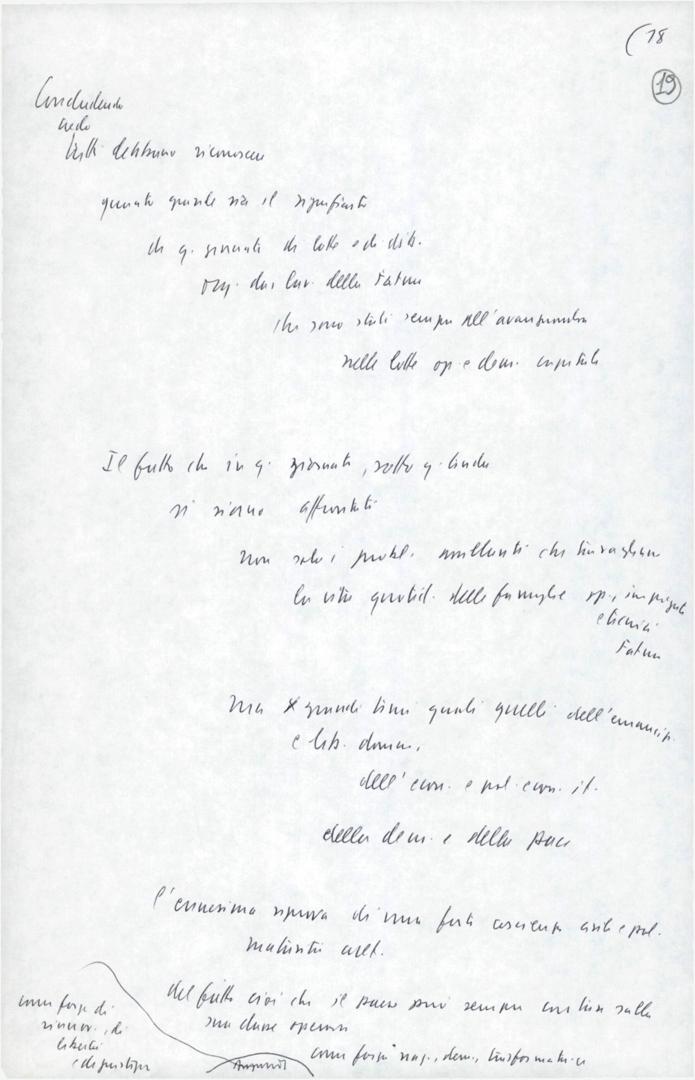 (18
19
Concludendo
credo
tutti debbano riconoscere
quanto grande sia il significato
di q. giornate di lotte e di dib.
org. dai lav. della Fatme
che sono stati sempre all'avanguardia
nelle lotte op. e dem. capitale
Il fatto che in q. giornate, sotto q. tenda
si siano affrontati
non solo i probl. assillanti che travagliano
la vita quotid. delle famiglie op., impiegati
e tecnici
Fatme
ma grandi temi quali quelli dell'emancip.
e lib. donna,
dell'econ. e pol. econ. it.
della dem. e della pace
l'ennesima riprova di una forte coscienza civile e pol.
maturità
del fatto cioè che il paese può sempre contare sulla
sua classe operaia
come forza naz., dem., trasformatrice
come forza di
rinnov., di
libertà
e di giustizia